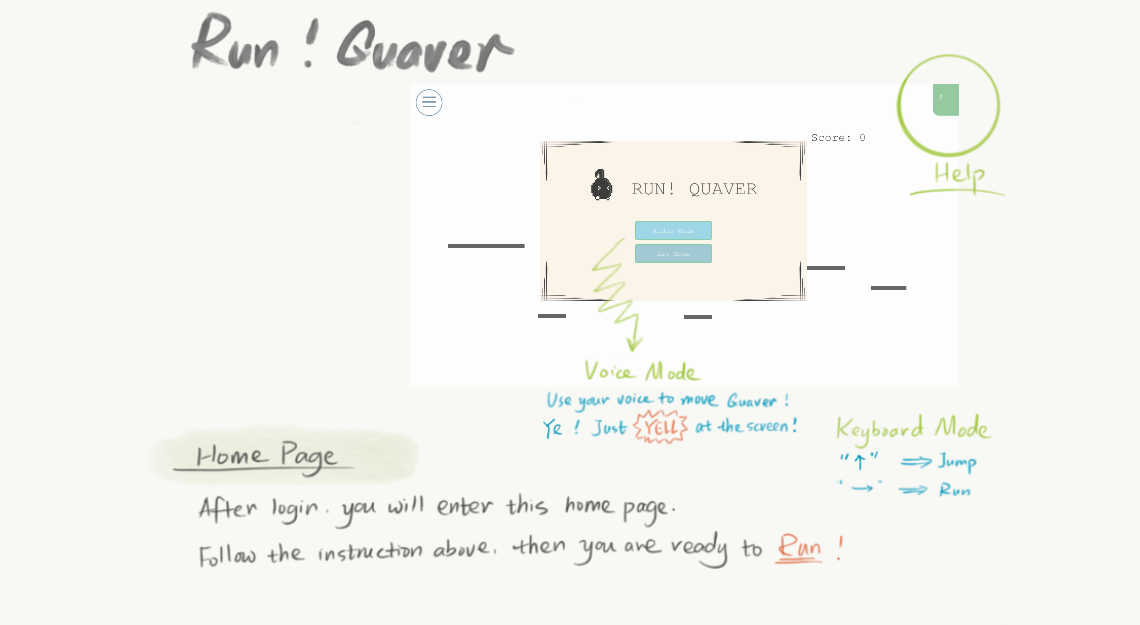 Run ! Quaver
?
Score: 0
Help
RUN! QUAVER
Audio Mode
Key Mode
Voice Mode
Use your voice to move Quaver !
Ye ! Just YELL at the screen !
Keyboard Mode
"↑" ⇒ Jump
"→" ⇒ Run
Home Page
After login, you will enter this home page.
Follow the instruction above, then you are ready to Run !